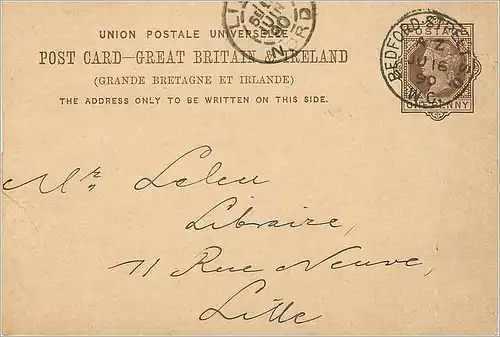 UNION POSTALE UNIVERSELLE
POST CARD—GREAT BRITAIN & IRELAND
(GRANDE BRETAGNE ET IRLANDE)
THE ADDRESS ONLY TO BE WRITTEN ON THIS SIDE.
LILLE
NORD
BEDFORD ST.
A Z
JU 16
90
W.C.
POSTAGE
ONE PENNY
Mr. Leleu
Libraire,
11 Rue Neuve,
Lille